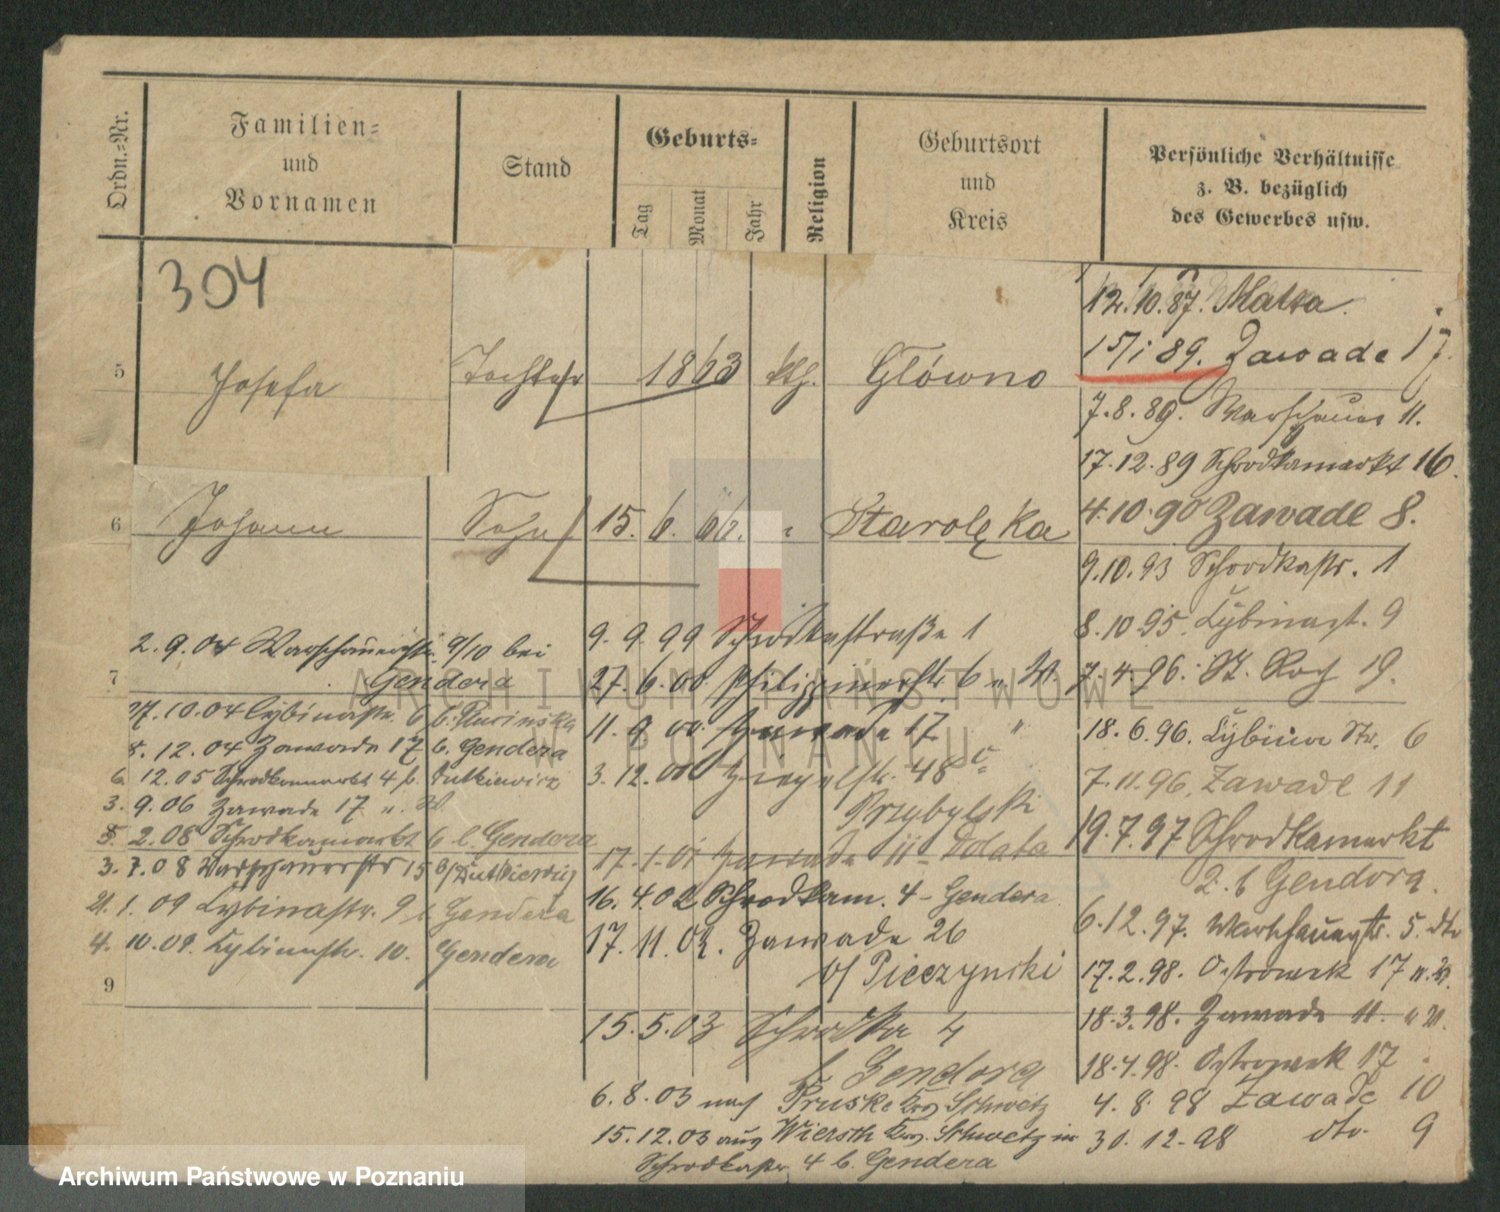 Ordn.=Nr.
Familien=
und
Vornamen
Stand
Geburts=
Tag
Monat
Jahr
Religion
Geburtsort
und
Kreis
Persönliche Verhältnisse
z. B. bezüglich
des Gewerbes usw.
304
12.10.87. Malta.
15/1 89. Zawade 17.
5 Josefa Tochter 1863 kth. Główno
7.8.89. Warschauer 11.
17.12.89 Schrodkamarkt 16.
6 Johann Sohn 15. 6. 66. " Starolęka
4.10.90 Zawade 8.
9.10.93 Schrodkastr. 1
8.10.95. Lybinast. 9
7.4.96. St. Roch 19.
18.6.96. Lybina Str. 6
7.11.96. Zawade 11
19.7.97 Schrodkamarkt
2. b Gendera.
6.12.97. Warschauerstr. 5. dto
17.2.98. Ostrowek 17 n. W.
18.3.98. Zawade 11.
18.4.98. Ostrowek 17
4. 8. 98 Zawade 10
31. 12. 98 dto. 9
9. 9. 99 Schrodkastraße 1
27. 6. 00 Philippinerstr. 6 n. W.
11. 9. 00. Zawade 17 "
3. 12. 00 Ziegelstr. 48
Przybylski
17. 1. 01 Zawade 11 - Dolata
16. 4. 02 Schrodkam. 4 - Gendera
17. 11. 02. Zawade 26
b/ Pieczynski
15. 5. 03 Schrodka 4
b. Gendera
6. 8. 03 nach Pruske Krs Schwetz
15. 12. 03 aus Krs. Schwetz in
Schrodkastr. 4 b. Gendera
7
2. 9. 04 Warschauerstr. 9/10 bei
Gendera
27. 10. 04 Lybinastr. 6 b. Rucinska
8. 12. 04 Zawade 17 b. Gendera
6. 12. 05 Schrodkamarkt 4 b. Dutkiewicz
3. 9. 06 Zawade 17 n. W.
5. 2. 08 Schrodkamarkt 6 b. Gendera
3. 7. 08 Warschauerstr 15 b/ Dutkiewicz
21. 1. 09 Lybinastr. 9 b. Gendera
4. 10. 09. Lybinastr. 10. Gendera
9
ARCHIWUM PAŃSTWOWE
W POZNANIU
Archiwum Państwowe w Poznaniu